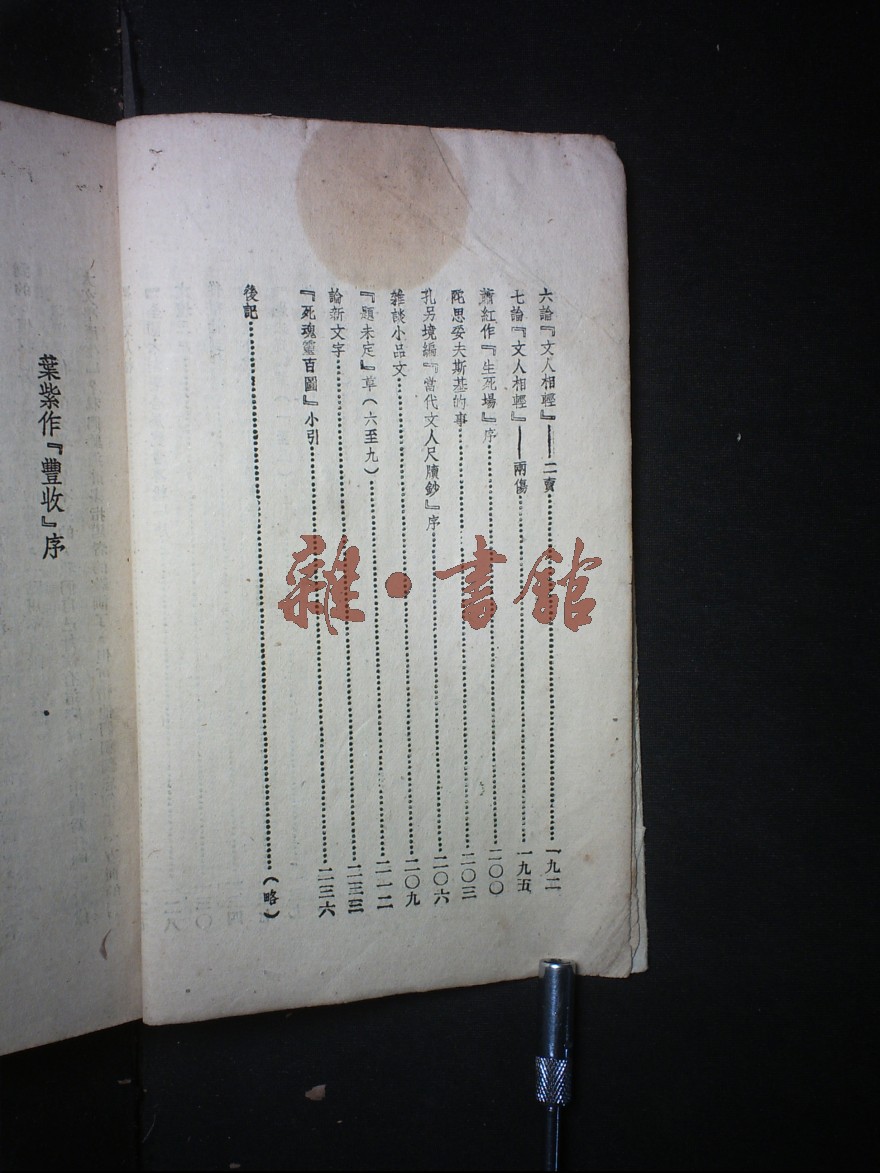 六論『文人相輕』——二賣…………一九二
七論『文人相輕』——兩傷…………一九五
蕭紅作『生死場』序…………二〇〇
陀思妥夫斯基的事…………二〇三
孔另境編『當代文人尺牘鈔』序…………二〇六
雜談小品文…………二〇九
『題未定』草（六至九）…………二一二
論新文字…………二三三
『死魂靈百圖』小引…………二三六
後記…………（略）
葉紫作『豐收』序
雜·書館